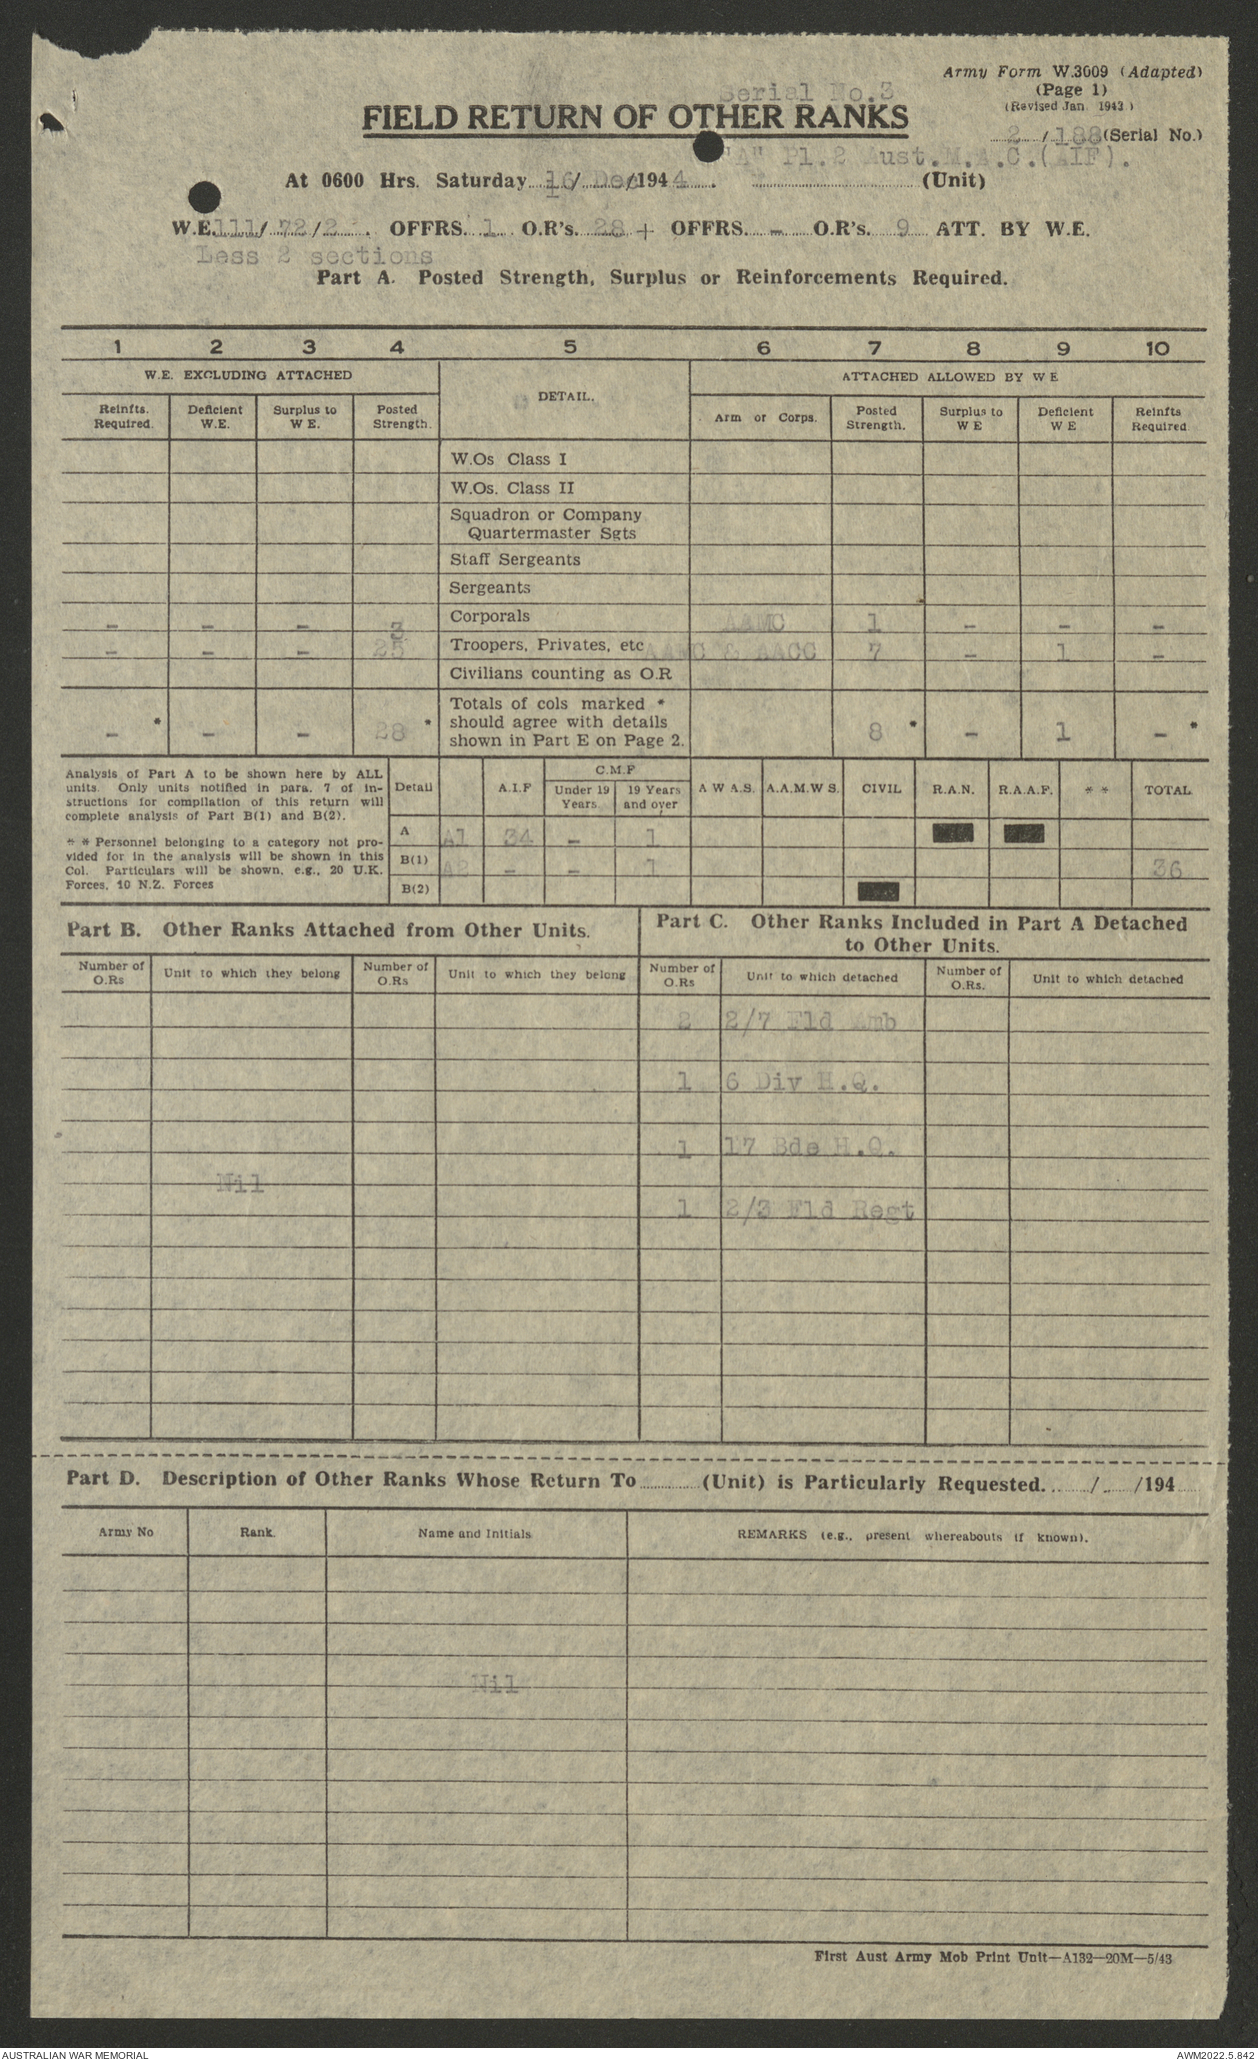 Army Form W.3009 (Adapted)
(Page 1)
(Revised Jan. 1943)
Serial No.3
FIELD RETURN OF OTHER RANKS
2/188 (Serial No.)
"A" Pl.2 Aust.M.A.C.(AIF).
At 0600 Hrs. Saturday 16/Dec/1944. (Unit)
W.E. 111/72/2. OFFRS. 1 O.R's. 28 + OFFRS. - O.R's. 9 ATT. BY W.E.
Less 2 sections
Part A. Posted Strength, Surplus or Reinforcements Required.
1 2 3 4 5 6 7 8 9 10
W.E. EXCLUDING ATTACHED DETAIL. ATTACHED ALLOWED BY W E
Reinfts. Required. Deficient W.E. Surplus to W E. Posted Strength. Arm or Corps. Posted Strength. Surplus to W E Deficient W E Reinfts Required
W.Os Class I
W.Os. Class II
Squadron or Company
Quartermaster Sgts
Staff Sergeants
Sergeants
- - - 3 Corporals AAMC 1 - - -
- - - 25 Troopers, Privates, etc AAMC & AACC 7 - 1 -
Civilians counting as O.R
Totals of cols marked *
should agree with details
shown in Part E on Page 2.
- * - - 28 * 8 * - 1 - *
Analysis of Part A to be shown here by ALL
units. Only units notified in para. 7 of in-
structions for compilation of this return will
complete analysis of Part B(1) and B(2).
* * Personnel belonging to a category not pro-
vided for in the analysis will be shown in this
Col. Particulars will be shown, e.g., 20 U.K.
Forces, 10 N.Z. Forces
Detail A.I.F C.M.F Under 19 Years. 19 Years and over A W A.S. A.A.M.W S. CIVIL R.A.N. R.A.A.F. * * TOTAL
A A1 34 - 1
B(1) A2 - - 1 36
B(2)
Part B. Other Ranks Attached from Other Units.
Part C. Other Ranks Included in Part A Detached
to Other Units.
Number of O.Rs Unit to which they belong Number of O.Rs Unit to which they belong Number of O.Rs Unit to which detached Number of O.Rs. Unit to which detached
2 2/7 Fld Amb
1 6 Div H.Q.
1 17 Bde H.Q.
Nil
1 2/3 Fld Regt
Part D. Description of Other Ranks Whose Return To ...... (Unit) is Particularly Requested. ....../....../194
Army No Rank. Name and Initials REMARKS (e.g., present whereabouts if known).
Nil
First Aust Army Mob Print Unit—A132—20M—5/43
AUSTRALIAN WAR MEMORIAL AWM2022.5.842